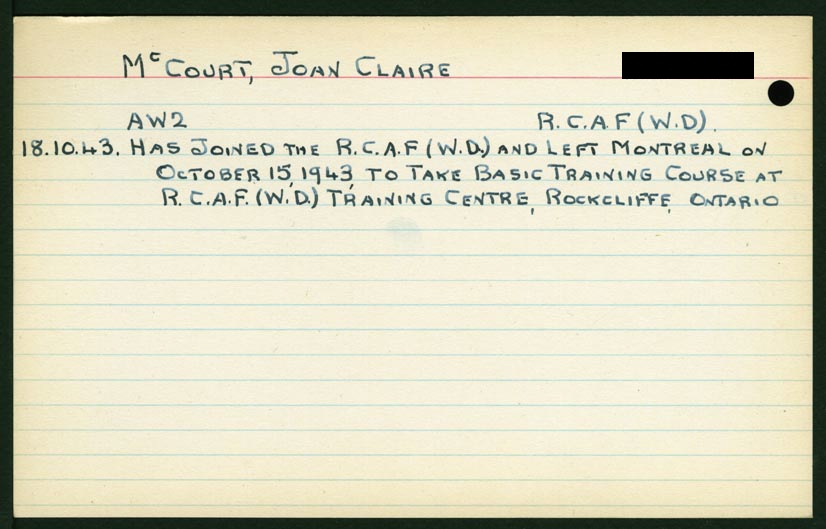 McCOURT, JOAN CLAIRE
AW2 R.C.A.F (W.D).
18.10.43. HAS JOINED THE R.C.A.F (W.D.) AND LEFT MONTREAL ON
OCTOBER 15, 1943, TO TAKE BASIC TRAINING COURSE AT
R.C.A.F. (W.D.) TRAINING CENTRE, ROCKCLIFFE, ONTARIO